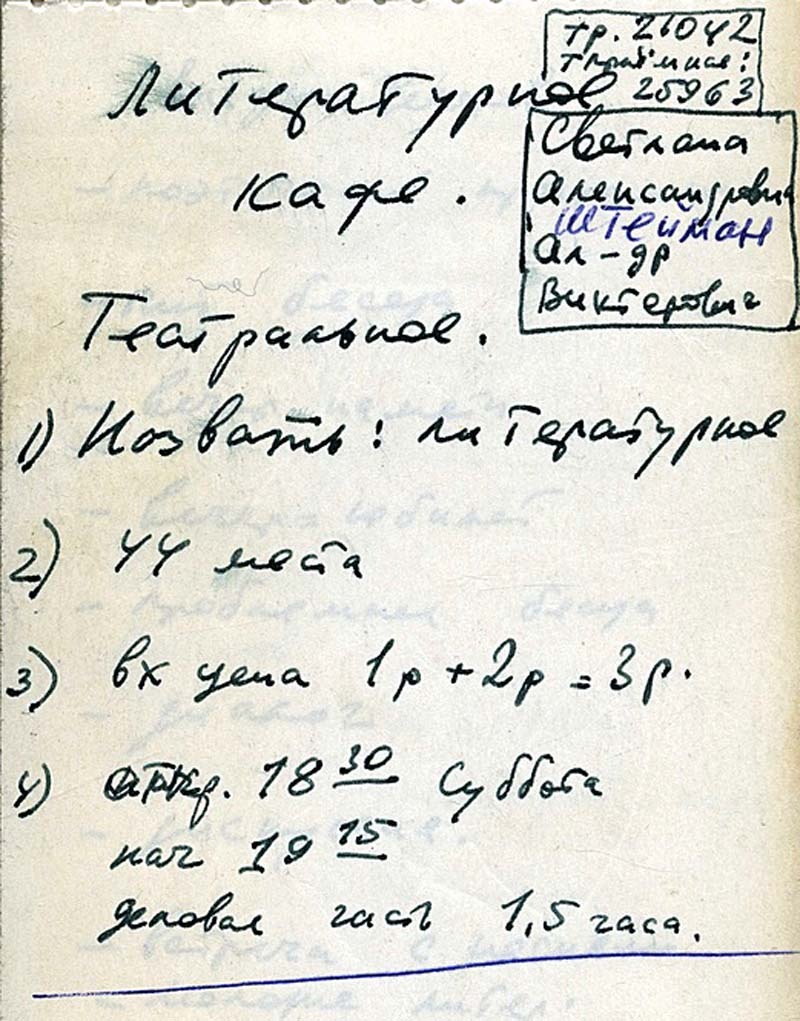 тр. 21042
приёмная:
25963
Литературное
кафе.
Светлана
Александровна
Штейман
Ал-др
Викторович
Театральное.
1) Назвать: литературное
2) 44 места
3) вх цена 1р + 2р = 3р.
4) откр. 18 30 Суббота
нач 19 15
деловая часть 1,5 часа.